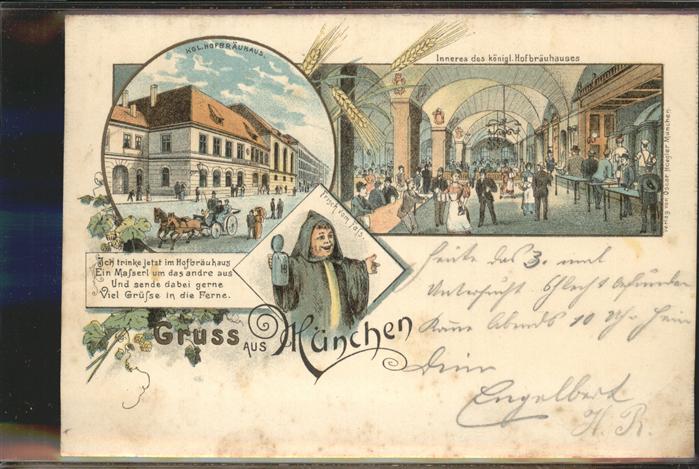 KGL. HOFBRÄUHAUS.
Inneres des königl. Hofbräuhauses
Verlag von Oscar Hoegler München.
Frisch vom Fass.
Ich trinke jetzt im Hofbräuhaus
Ein Masserl um das andre aus
Und sende dabei gerne
Viel Grüsse in die Ferne.
Gruss aus München
Heute das 3. mal
Untersucht schlecht befunden
Komme Abends 10 Uhr heim
Dein
Engelbert
H. R.